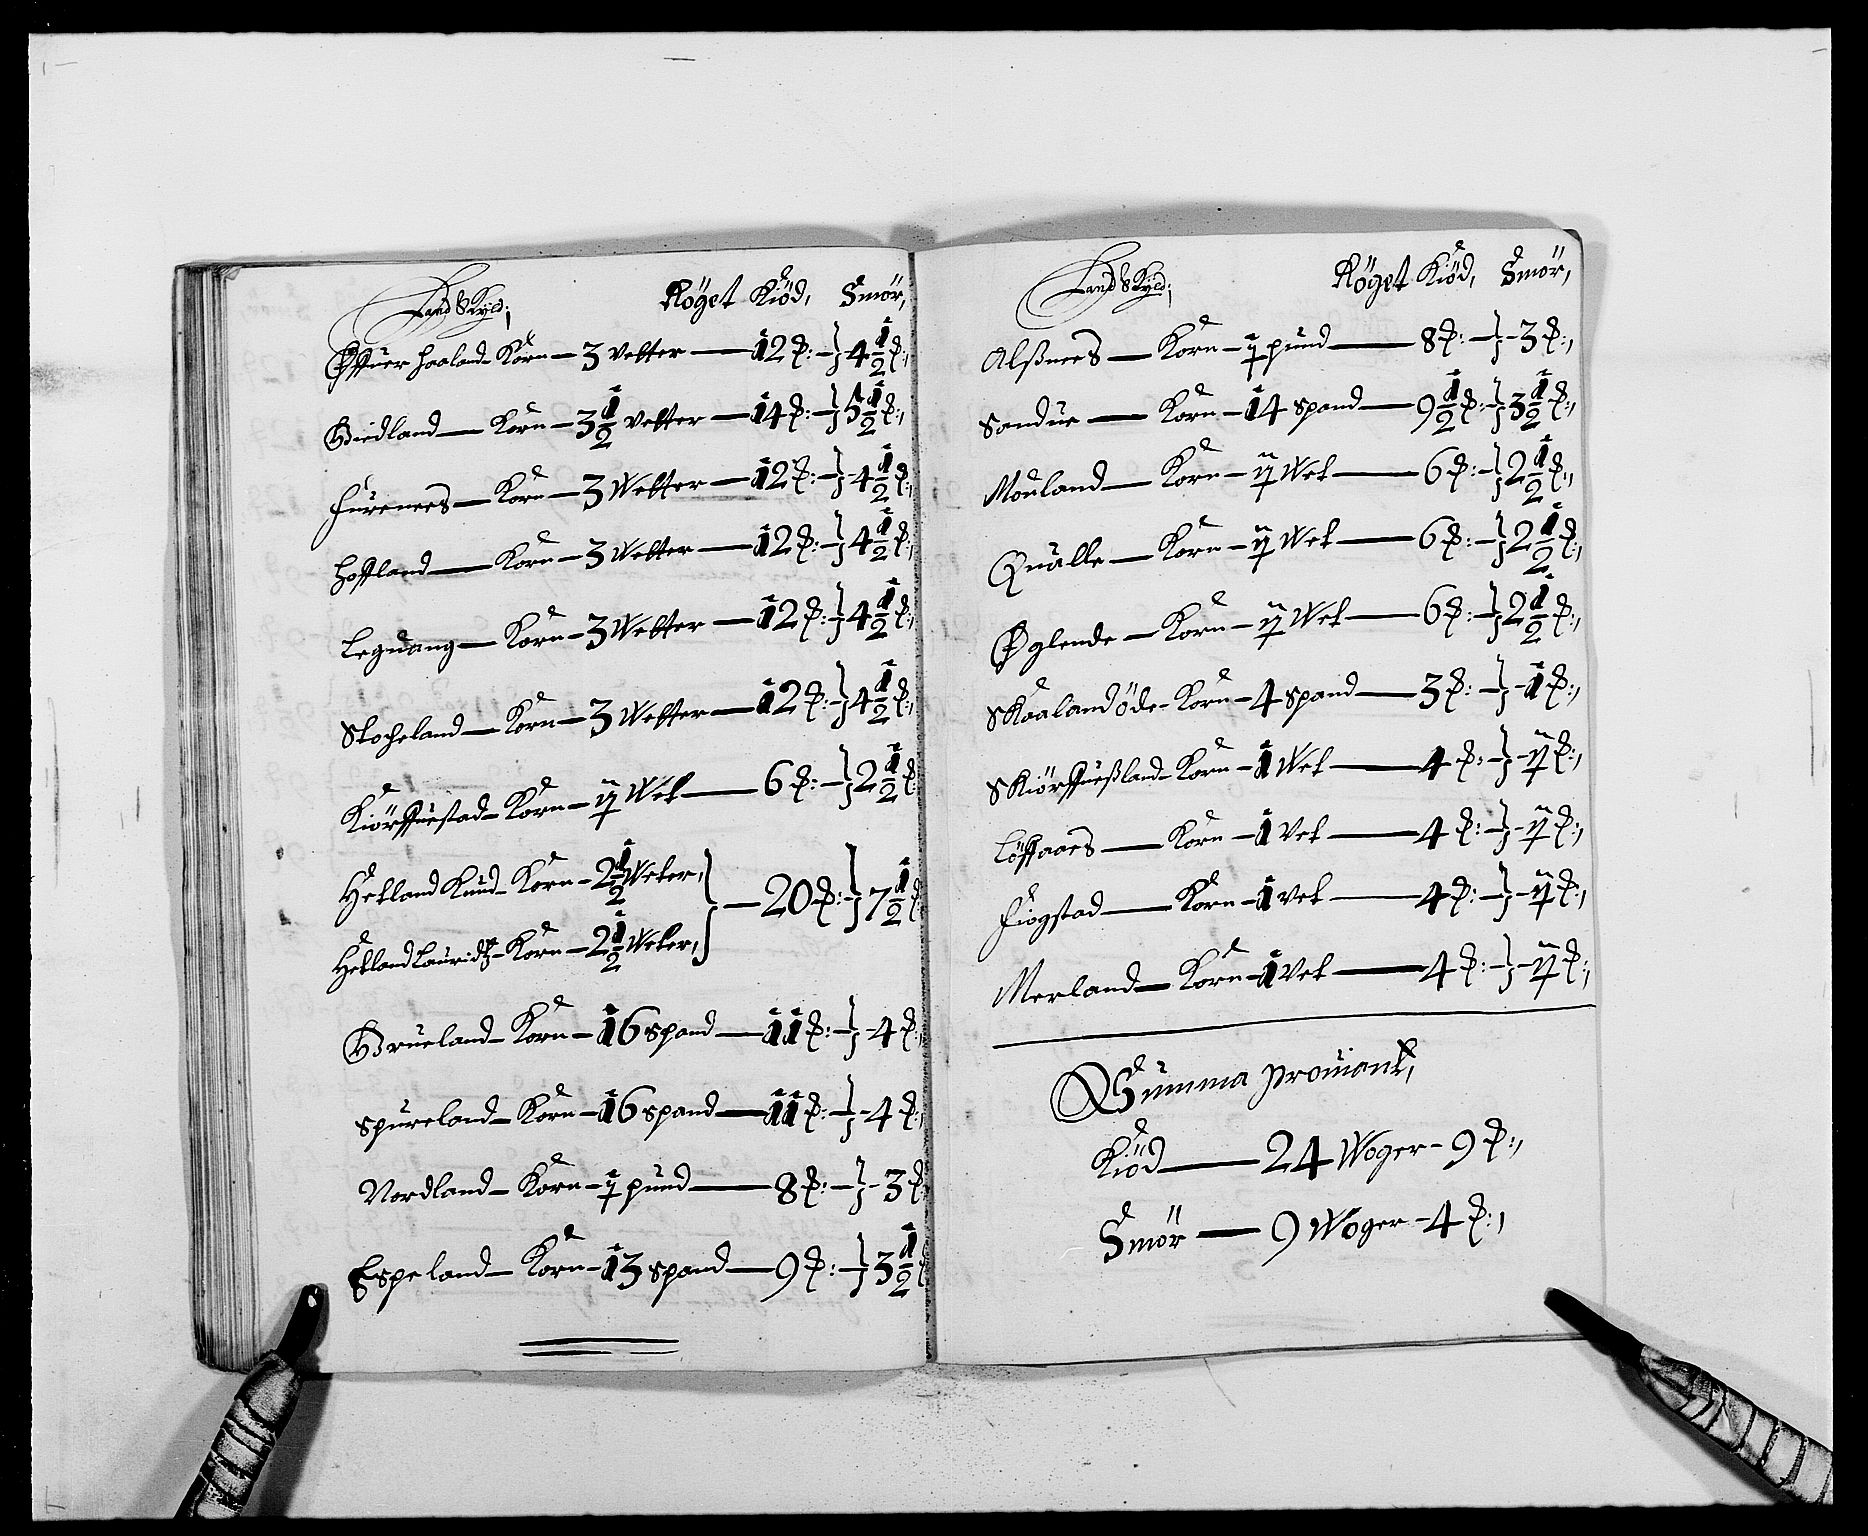 Land Skyld; Röget Kiöd, Smör,
Øffuer Haaland Korn – 3 Vetter — 12 ℔: – } 4 1/2 ℔:,
Giedland — Korn – 3 1/2 Vetter – 14 ℔: – } 5 1/2 ℔:,
Furenees – Korn – 3 Wetter – 12 ℔: – } 4 1/2 ℔:,
Hoffland — Korn – 3 Wetter — 12 ℔: – } 4 1/2 ℔:,
Leguang – Korn – 3 Wetter — 12 ℔: – } 4 1/2 ℔:,
Stocheland – Korn – 3 Wetter – 12 ℔: – } 4 1/2 ℔:,
Kiörffuestad – Korn – ij Wet — 6 ℔: – } 2 1/2 ℔
Hetland Knud – Korn – 2 1/2 Weter, } — 20 ℔: – } 7 1/2 ℔
Hetland Lauridtz – Korn – 2 1/2 Weter,
Grueland – Korn – 16 spand — 11 ℔: – } – 4 ℔:
Spureland – Korn – 16 spand — 11 ℔: – } – 4 ℔:
Nordland – Korn – j pund — 8 ℔: – } – 3 ℔
Espeland – Korn – 13 spand — 9 ℔: – } 3 1/2 ℔
Land Skyld; Röget Kiöd, Smör,
Alßnees — Korn – j pund — 8 ℔: – } – 3 ℔:,
Sandue — Korn – 14 spand — 9 1/2 ℔: – } 3 1/2 ℔:,
Mouland — Korn – ij Wet — 6 ℔: – } 2 1/2 ℔:,
Qualle — Korn – ij Wet — 6 ℔: – } 2 1/2 ℔:,
Øglende – Korn – ij Wet — 6 ℔: – } 2 1/2 ℔:,
Skaalandöde – Korn – 4 spand — 3 ℔: – } – 1 ℔:,
Skiörffueßland – Korn – 1 Wet — 4 ℔: – } – ij ℔:,
Löffaaes — Korn – 1 Vet — 4 ℔: – } – ij ℔:,
Fiogstad — Korn – 1 Vet — 4 ℔: – } – ij ℔:,
Merland — Korn – 1 Vet — 4 ℔: – } – ij ℔:,
Summa Prouiant,
Kiöd — 24 Woger – 9 ℔:,
Smör — 9 Woger – 4 ℔:,